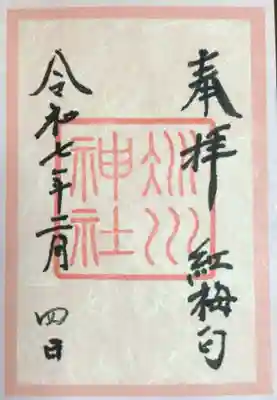 奉拝 紅梅匂
氷川
神社
令和七年二月四日